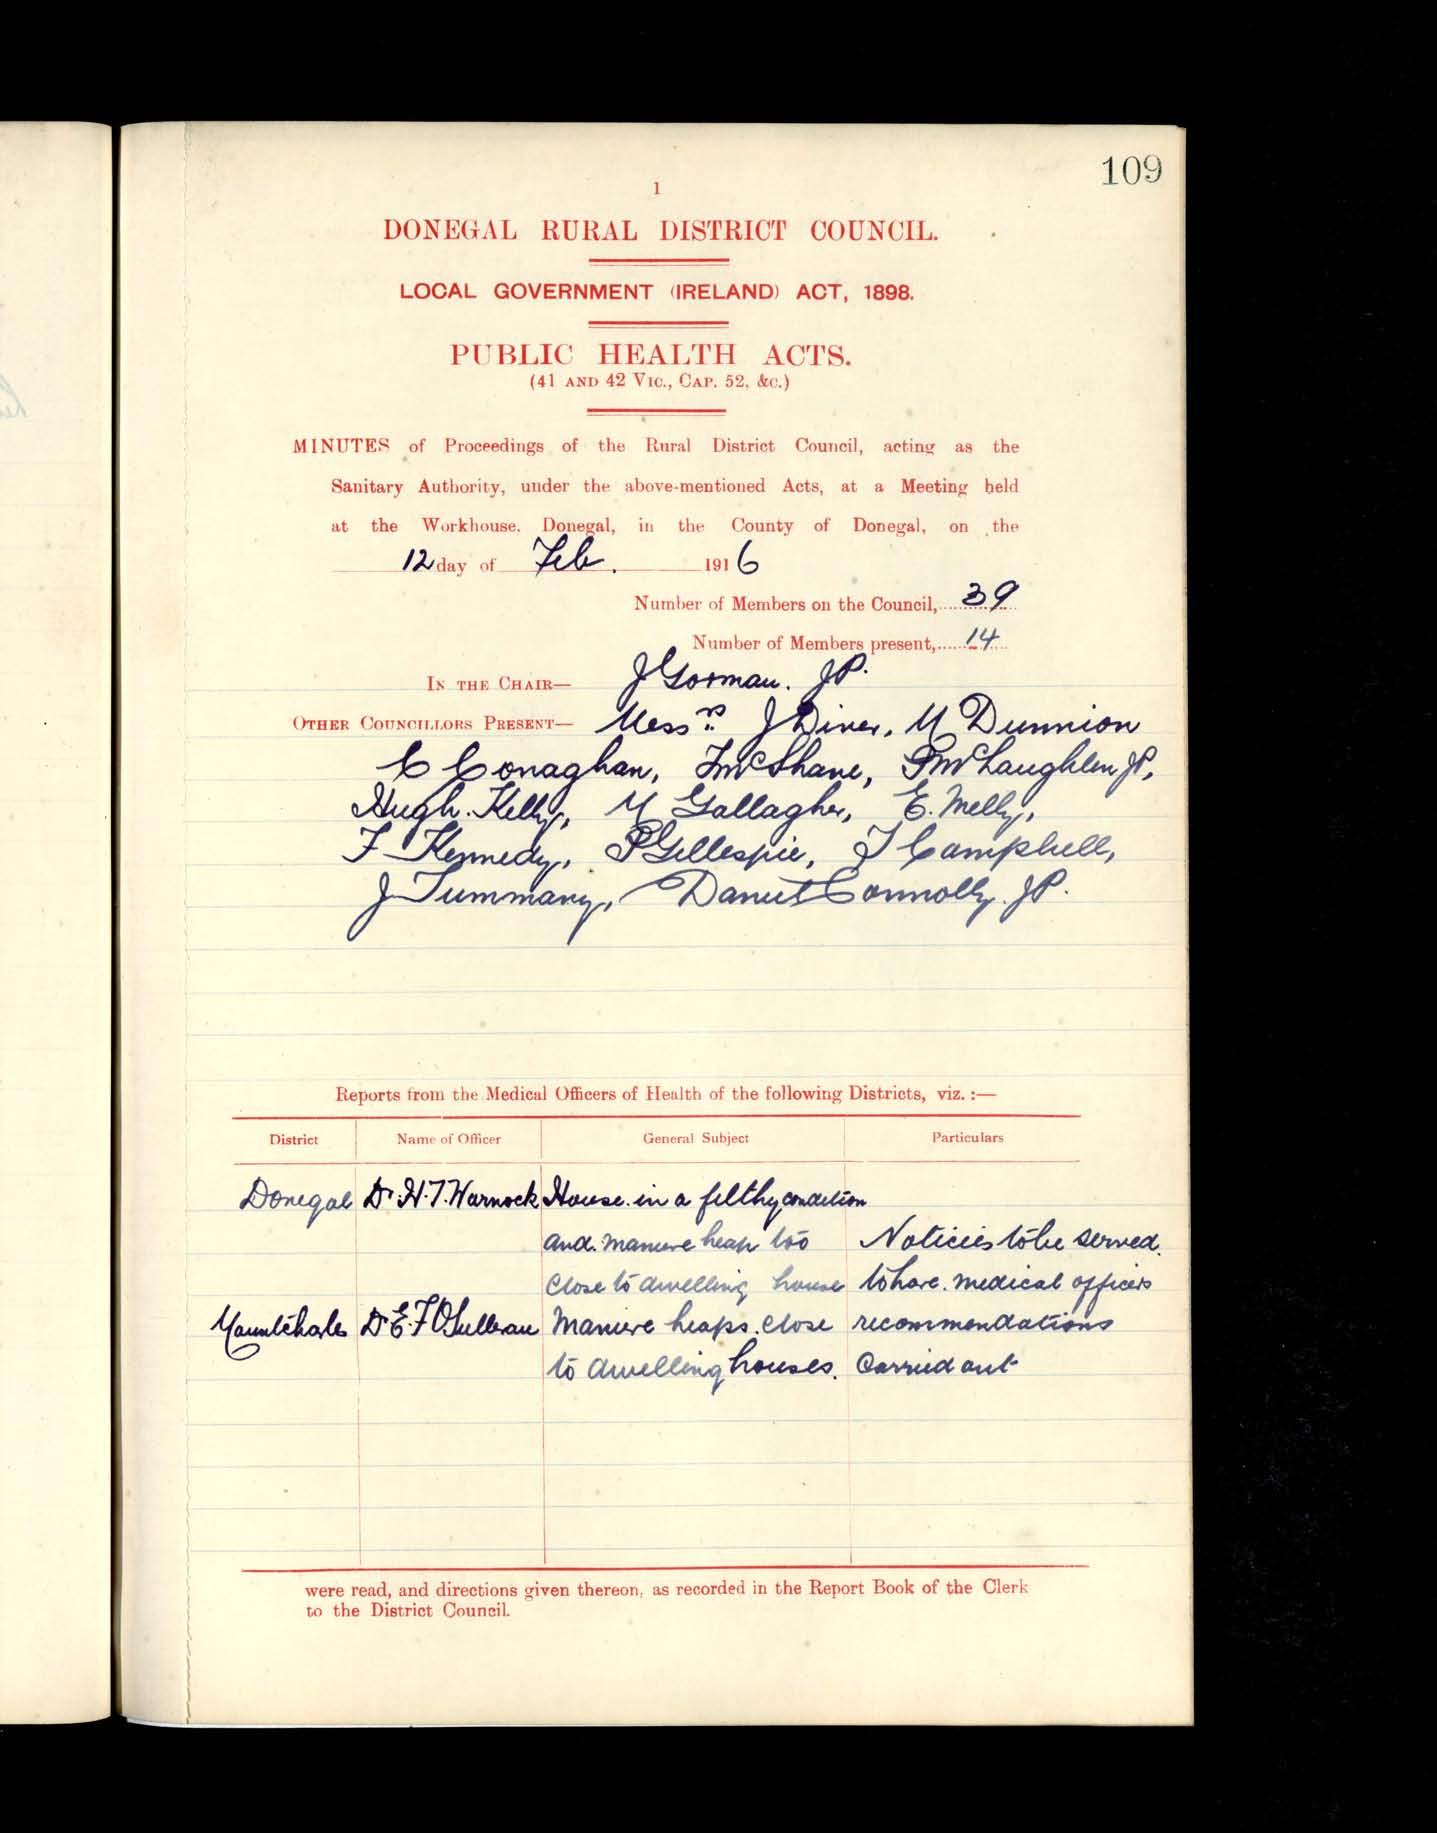 109
1
DONEGAL RURAL DISTRICT COUNCIL.
LOCAL GOVERNMENT (IRELAND) ACT, 1898.
PUBLIC HEALTH ACTS.
(41 AND 42 VIC., CAP. 52, &C.)
MINUTES of Proceedings of the Rural District Council, acting as the
Sanitary Authority, under the above-mentioned Acts, at a Meeting held
at the Workhouse, Donegal, in the County of Donegal, on the
12 day of Feb. 1916
Number of Members on the Council, 39
Number of Members present, 14
IN THE CHAIR— J Gorman. JP.
OTHER COUNCILLORS PRESENT— Messrs J Diver, M Dunnion
C Conaghan, F McShane, P McLaughlin JP,
Hugh Kelly, M Gallagher, E. Melly,
F Kennedy, P Gillespie, J Campbell,
J Tummany, Connolly. JP.
Reports from the Medical Officers of Health of the following Districts, viz. :—
District Name of Officer General Subject Particulars
Donegal Dr. H. T. Warnock House in a filthy condition
and manure heap too Noticies to be served
close to dwelling house to have medical officers
Mountcharles Dr E. F O'Sullivan Manure heaps close recommendations
to dwelling houses. Carried out
were read, and directions given thereon, as recorded in the Report Book of the Clerk
to the District Council.